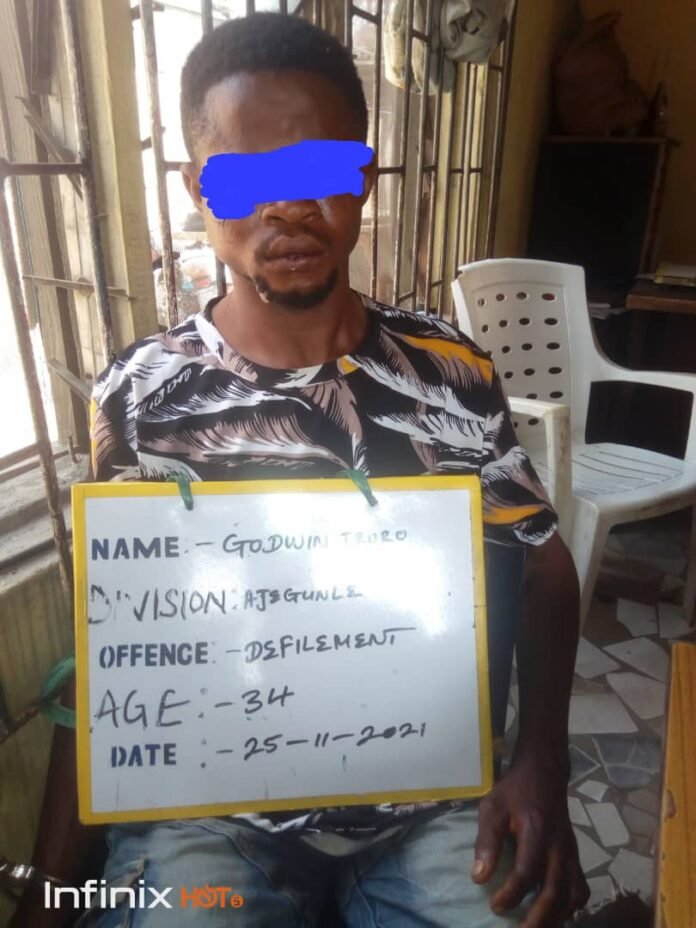 NAME:- GODWIN
DIVISION: AJEGUNLE
OFFENCE:- DEFILEMENT
AGE:- 34
DATE :- 25-11-2021
Infinix HOT 5